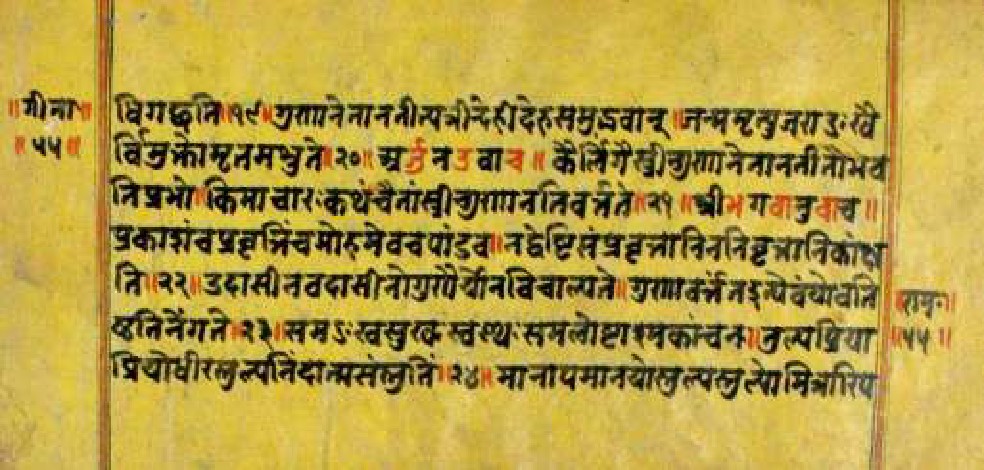 ॥गीता॥
॥५५॥
धिगछति॥१९॥गुणानेतानतीत्यत्रीन्देहीदेहसमुद्भवान्॥जन्ममृत्युजरादुःखै
र्विमुक्तोमृतमश्नुते॥२०॥अर्जुनउवाच॥कैर्लिंगैस्त्रीन्गुणानेतानतीतोभव
तिप्रभो॥किमाचारःकथंचैतांस्त्रीन्गुणानतिवर्त्तते॥२१॥श्रीभगवानुवाच॥
प्रकाशंचप्रवृत्तिंचमोहमेवचपांडव॥नद्वेष्टिसंप्रवृत्तानिननिवृत्तानिकांक्ष
ति॥२२॥उदासीनवदासीनोगुणैर्योनविचाल्यते॥गुणावर्त्तंतइत्येवंयोवति
ष्ठतिनेंगते॥२३॥समदुःखसुखःस्वस्थःसमलोष्टाश्मकांचनः॥तुल्यप्रिया
प्रियोधीरस्तुल्यनिंदात्मसंस्तुतिः॥२४॥मानापमानयोस्तुल्यस्तुल्योमित्रारिप
॥रामः॥
॥५५॥